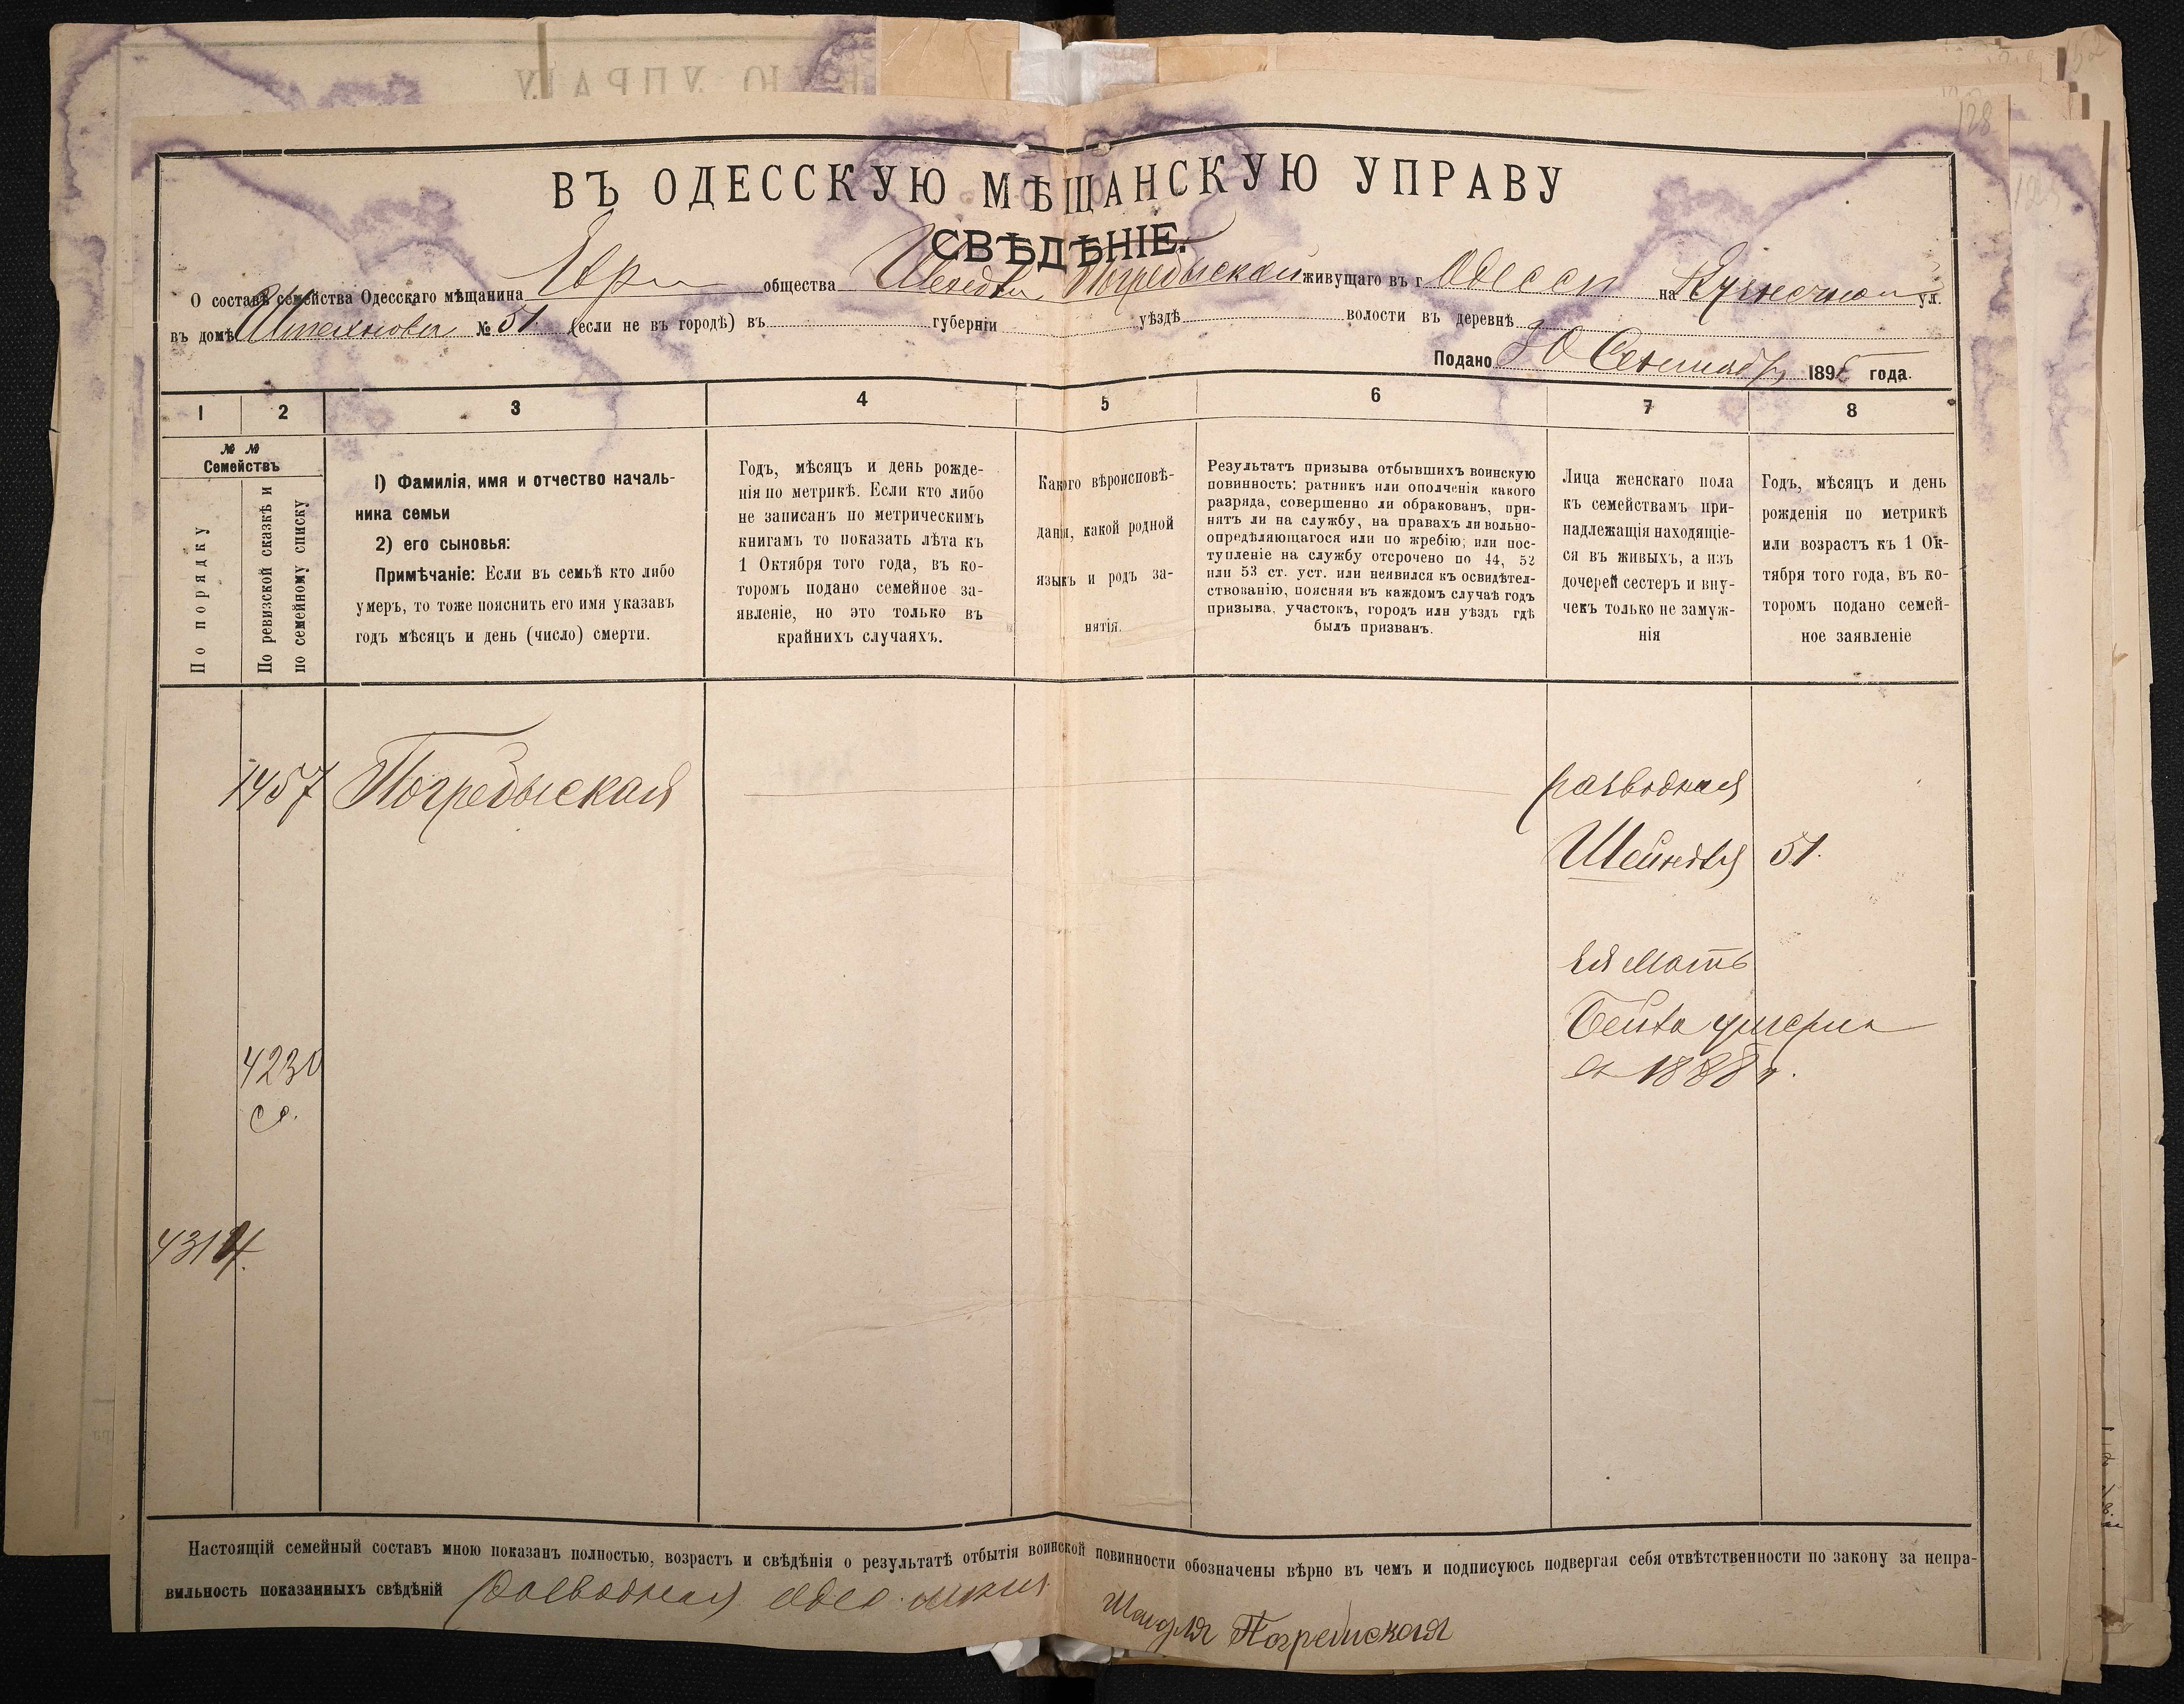 128
ВЪ ОДЕССКУЮ МѢЩАНСКУЮ УПРАВУ
СВѢДѢНІЕ.
О составѣ семейства Одесскаго мѣщанина Евр общества Погребыской живущаго въ г Одессѣ на Кузнечной ул.
въ домѣ № 51. (если не въ городѣ) въ губерніи уѣздѣ волости въ деревнѣ
Подано 30 Сентября 189 года.
1 2 3 4 5 6 7 8
№ № Семействъ
По порядку
По ревизской сказкѣ и по семейному списку
1) Фамилія, имя и отчество началь-
ника семьи
2) его сыновья:
Примѣчаніе: Если въ семьѣ кто либо
умеръ, то тоже пояснить его имя указавъ
годъ мѣсяцъ и день (число) смерти.
Годъ, мѣсяцъ и день рожде-
нія по метрикѣ. Если кто либо
не записанъ по метрическимъ
книгамъ то показать лѣта къ
1 Октября того года, въ ко-
торомъ подано семейное за-
явленіе, но это только въ
крайнихъ случаяхъ.
Какого вѣроисповѣ-
данія, какой родной
языкъ и родъ за-
нятія.
Результатъ призыва отбывшихъ воинскую
повинность: ратникъ или ополченія какого
разряда, совершенно ли обракованъ, при-
нятъ ли на службу, на правахъ ли вольно-
опредѣляющагося или по жребію; или пос-
тупленіе на службу отсрочено по 44, 52
или 53 ст. уст. или неявился къ освидѣтел-
ствованію, поясняя въ каждомъ случаѣ годъ
призыва, участокъ, городъ или уѣздъ гдѣ
былъ призванъ.
Лица женскаго пола
къ семействамъ при-
надлежащія находящіе-
ся въ живыхъ, а изъ
дочерей сестеръ и вну-
чекъ только не замуж-
нія
Годъ, мѣсяцъ и день
рожденія по метрикѣ
или возрастъ къ 1 Ок-
тября того года, въ ко-
торомъ подано семей-
ное заявленіе
1457 Погребыская разводная
Шейндля 51.
ея мать
Бейла умерла
въ 1888 г.
4230
Настоящій семейный составъ мною показанъ полностью, возрастъ и свѣдѣнія о результатѣ отбытія воинской повинности обозначены вѣрно въ чемъ и подписуюсь подвергая себя отвѣтственности по закону за непра-
вильность показанныхъ свѣдѣній разводная Одес.
Шендля Погребиская